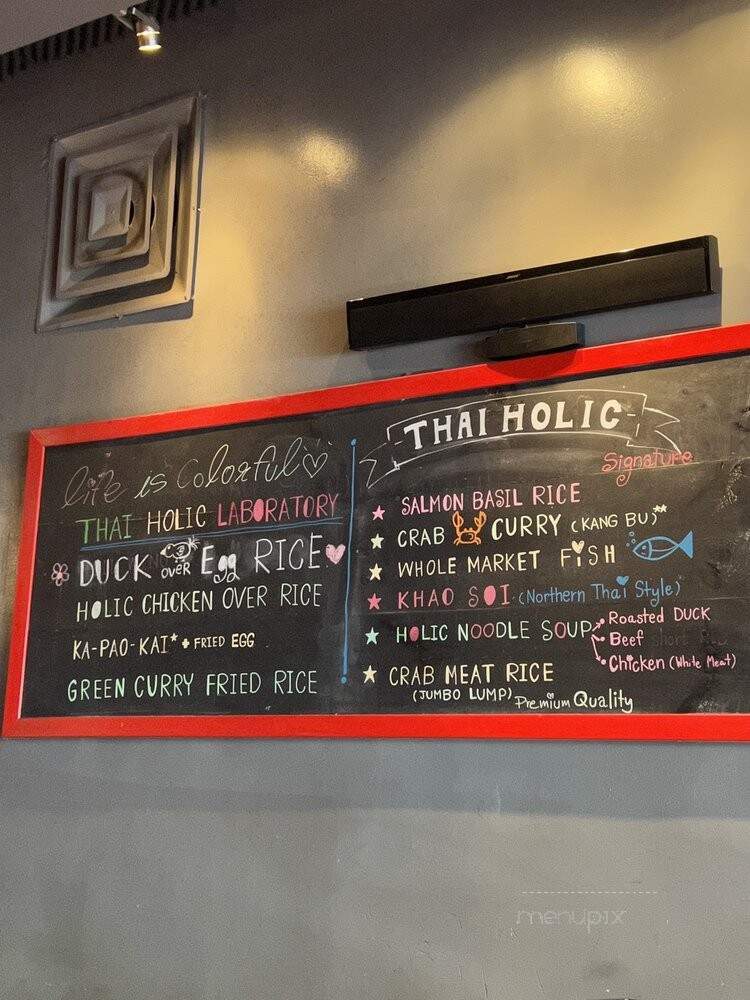 Life is Colorful
THAI HOLIC LABORATORY
DUCK OVER Egg RICE
HOLIC CHICKEN OVER RICE
KA-PAO-KAI* + FRIED EGG
GREEN CURRY FRIED RICE
THAI HOLIC
Signature
SALMON BASIL RICE
CRAB CURRY (KANG BU)**
WHOLE MARKET FiSH
KHAO SOI (Northern Thai Style)
HOLIC NOODLE SOUP
Roasted DUCK
Beef
Chicken (White Meat)
CRAB MEAT RICE
(JUMBO LUMP) Premium Quality
menupix